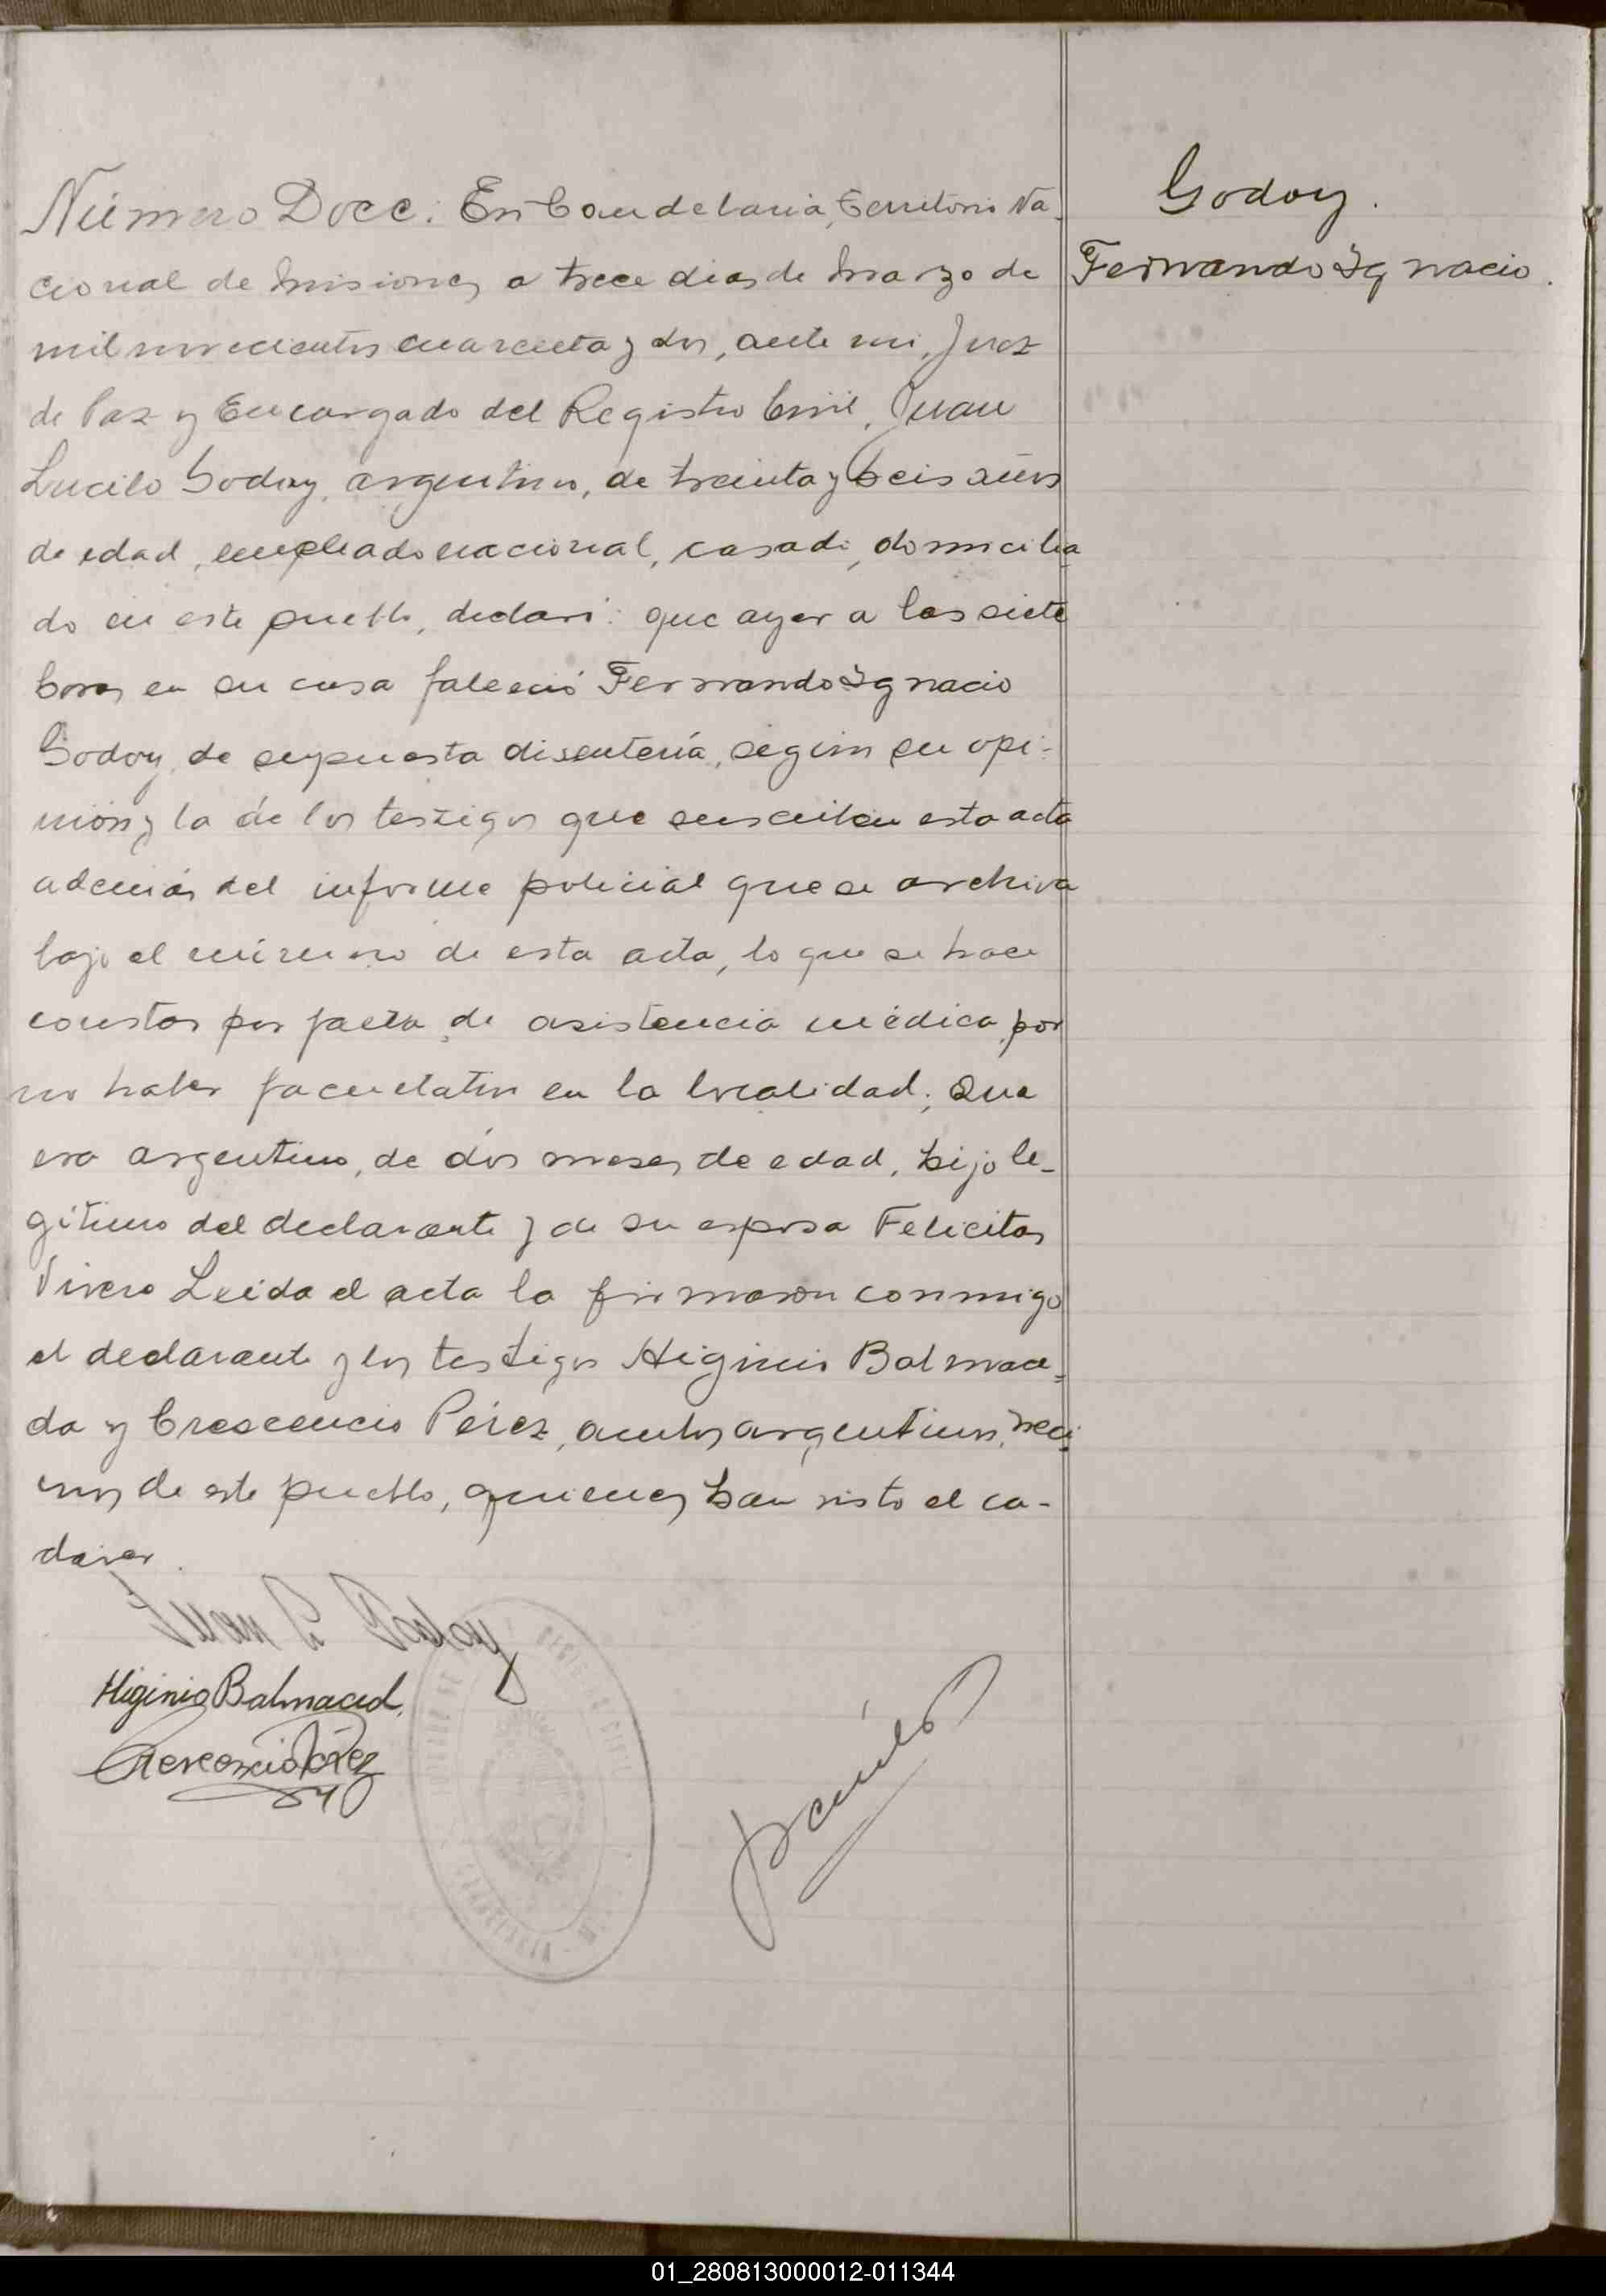 Número Doce. En Candelaria, territorio Na-
cional de Misiones, a trece dias de Marzo de
mil novecientos cuarenta y dos, ante mi, Juez
de Paz y Encargado del Registro Civil, Juan
Lucilo Godoy, argentino, de treinta y seis años
de edad, empleado nacional, casado, domicilia-
do en este pueblo, declaró: que ayer a las siete
horas en su casa falleció Fernando Ignacio
Godoy, de supuesta disentería, según su opi-
nión y la de los testigos que suscriben esta acta
además del informe policial que se archiva
bajo el número de esta acta, lo que se hace
constar por falta de asistencia médica, por
no haber facultativo en la localidad; Que
era argentino, de dos meses de edad, hijo le-
gítimo del declarante y de su esposa Felicitas
Vivero Leida el acta la firmaron conmigo
el declarante y los testigos Higinio Balmace-
da y Crescencio Pérez, ambos argentinos, veci-
nos de este pueblo, quienes han visto el ca-
daver.
Juan L. Godoy
Higinio Balmaced
Crescencio Pérez
Godoy.
Fernando Ignacio.
01_280813000012-011344